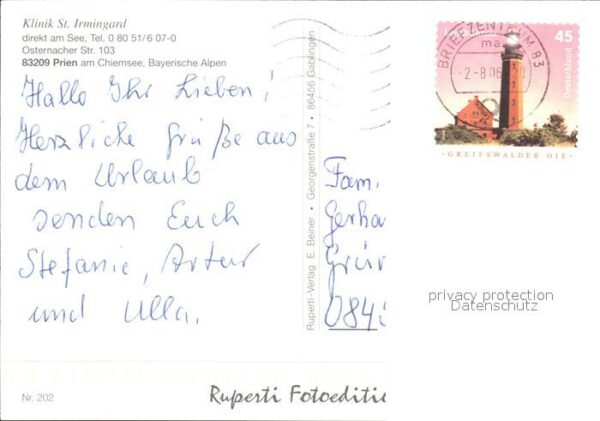 Klinik St. Irmingard
direkt am See, Tel. 0 80 51/6 07-0
Osternacher Str. 103
83209 Prien am Chiemsee, Bayerische Alpen
Hallo Ihr Lieben!
Herzliche Grüße aus
dem Urlaub
senden Euch
Stefanie, Artur
und Ulla.
Nr. 202
Ruperti-Verlag E. Beiner • Georgenstraße 7 • 86456 Gablingen
BRIEFZENTRUM 83
45
Deutschland
GREIFSWALDER OIE
Fam.
Gerha
Grün
084
privacy protection
Datenschutz
Ruperti Fotoeditio